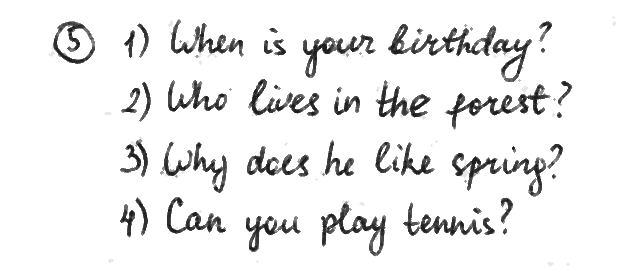 ⑤ 1) When is your birthday?
2) Who lives in the forest?
3) Why does he like spring?
4) Can you play tennis?